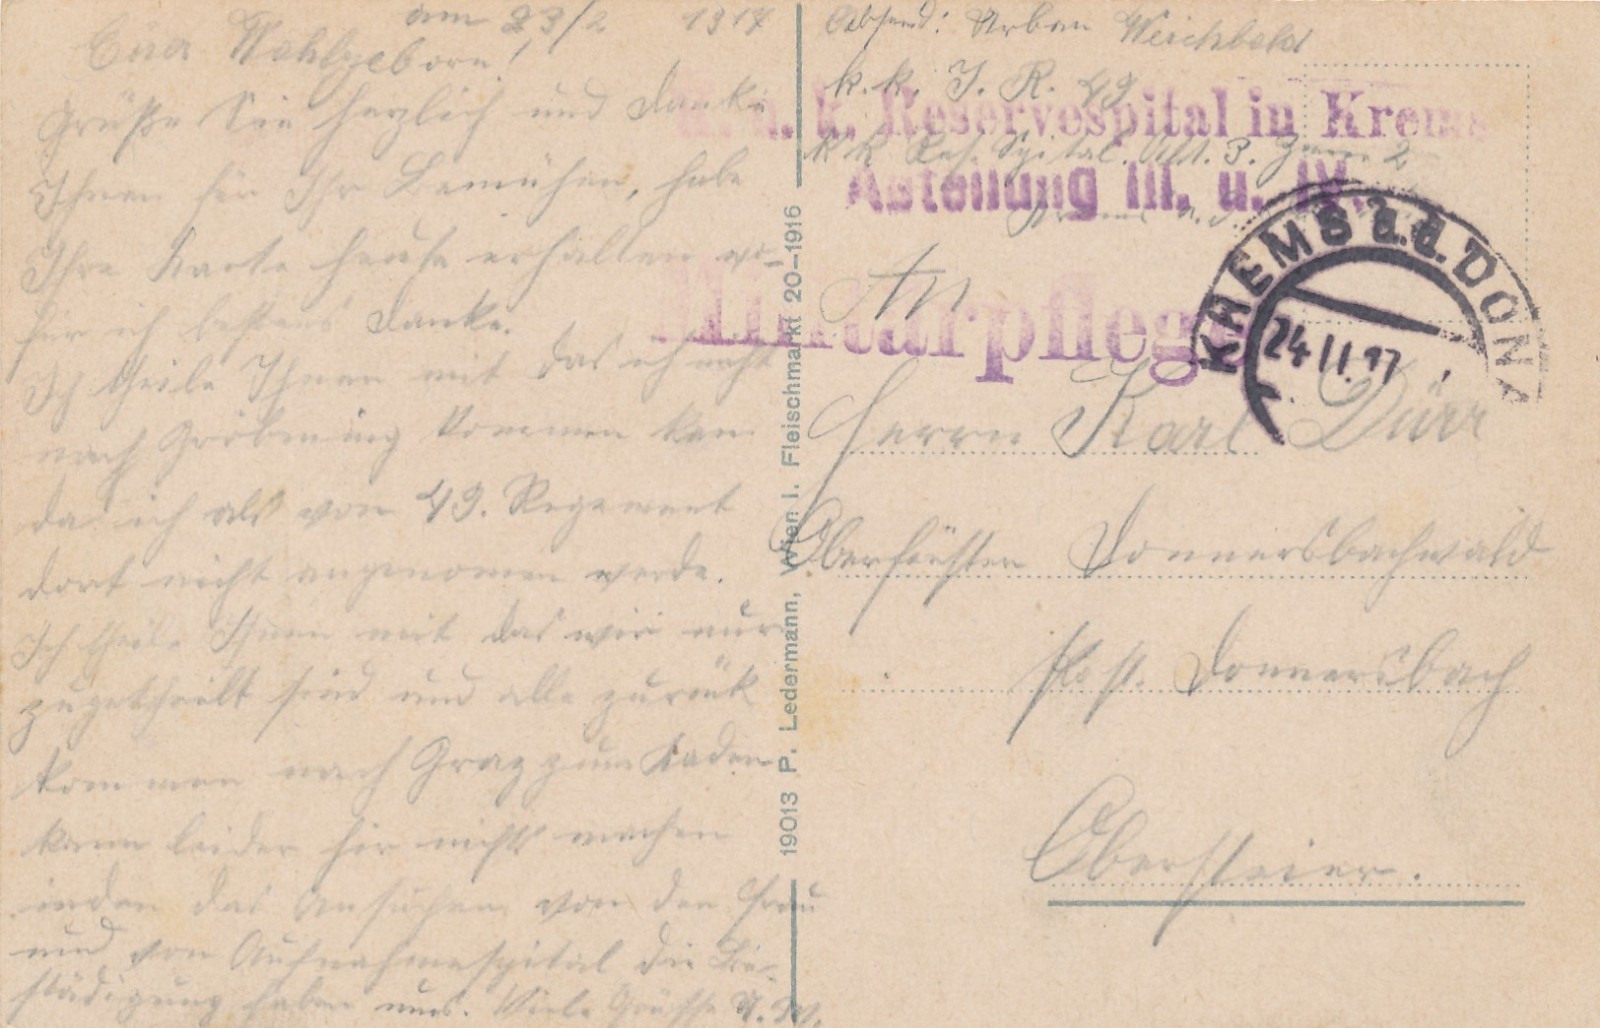 am 23/2 1917
Euer Wohlgeborn!
Grüße Sie herzlich und danke
Ihnen für Ihr Bemühen, habe
Ihre Karte heute erhalten wo-
für ich bestens danke.
Ich theile Ihnen mit das ich nicht
nach Gröbming kommen kan
da ich als vom 49. Regement
dort nicht angenomen werde.
Ich theile Ihnen mit das wir nur
zugetheilt sind und alle zurük
kommen nach Graz zum Kader
kann leider hir nichts machen
das Ansuchen von der Frau
und vom Aufnahmespital die Be-
städigung haben mus. Viele Grüsse U. W.
19013 P. Ledermann, Wien I. Fleischmarkt 20-1916
Absend: Urban Weichbold
k. k. I. R. 49
k k Res. Spital. Abt. 3. Zimm 2
Krems a. d.
K. u. k. Reservespital in Krems
Abteilung III. u. IV.
Militärpflege
KREMS a.d. DONAU
24 II. 17
An
Herrn Karl Dürr
Oberförster Donnersbachwald
Post. Donnersbach
Obersteier.